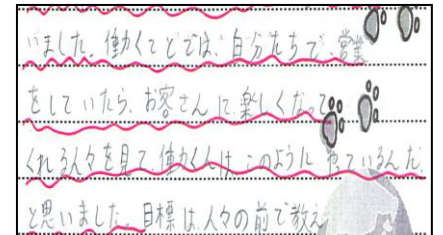 いました。働くことでは、自分たちで、営業
をしていたら、お客さんに楽しくだって
くれる人々を見て働くんは、このようにやっているんだ
と思いました。目標は人々の前で教え